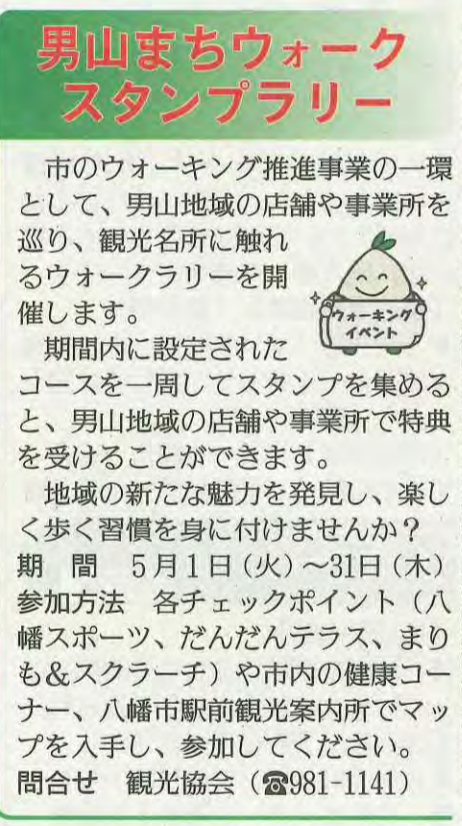 男山まちウォーク
スタンプラリー
　市のウォーキング推進事業の一環
として、男山地域の店舗や事業所を
巡り、観光名所に触れ
るウォークラリーを開
催します。
ウォーキング
イベント
　期間内に設定された
コースを一周してスタンプを集める
と、男山地域の店舗や事業所で特典
を受けることができます。
　地域の新たな魅力を発見し、楽し
く歩く習慣を身に付けませんか？
期　間　５月１日（火）～31日（木）
参加方法　各チェックポイント（八
幡スポーツ、だんだんテラス、まり
も＆スクラーチ）や市内の健康コー
ナー、八幡市駅前観光案内所でマッ
プを入手し、参加してください。
問合せ　観光協会（☎981-1141）